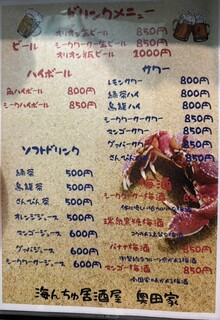 ドリンクメニュー
ビール
オリオン生ビール 850円
シークワーサー生ビール 850円
オリオン瓶ビール 1000円
ハイボール
角ハイボール 800円
シークハイボール 850円
サワー
レモンサワー 800円
緑茶ハイ 800円
烏龍ハイ 800円
シークワーサーサワー 850円
マンゴーサワー 850円
グァバサワー 850円
さんぴん
ソフトドリンク
緑茶 500円
烏龍茶 500円
さんぴん茶 500円
オレンジジュース 500円
マンゴージュース 600円
グァバジュース 600円
シークワーサージュース 600円
梅酒
シークワーサー梅酒 850円
琉球黒糖梅酒 850円
バナナ梅酒 850円
マンゴー梅酒 850円
海んちゅ居酒屋 奥田家